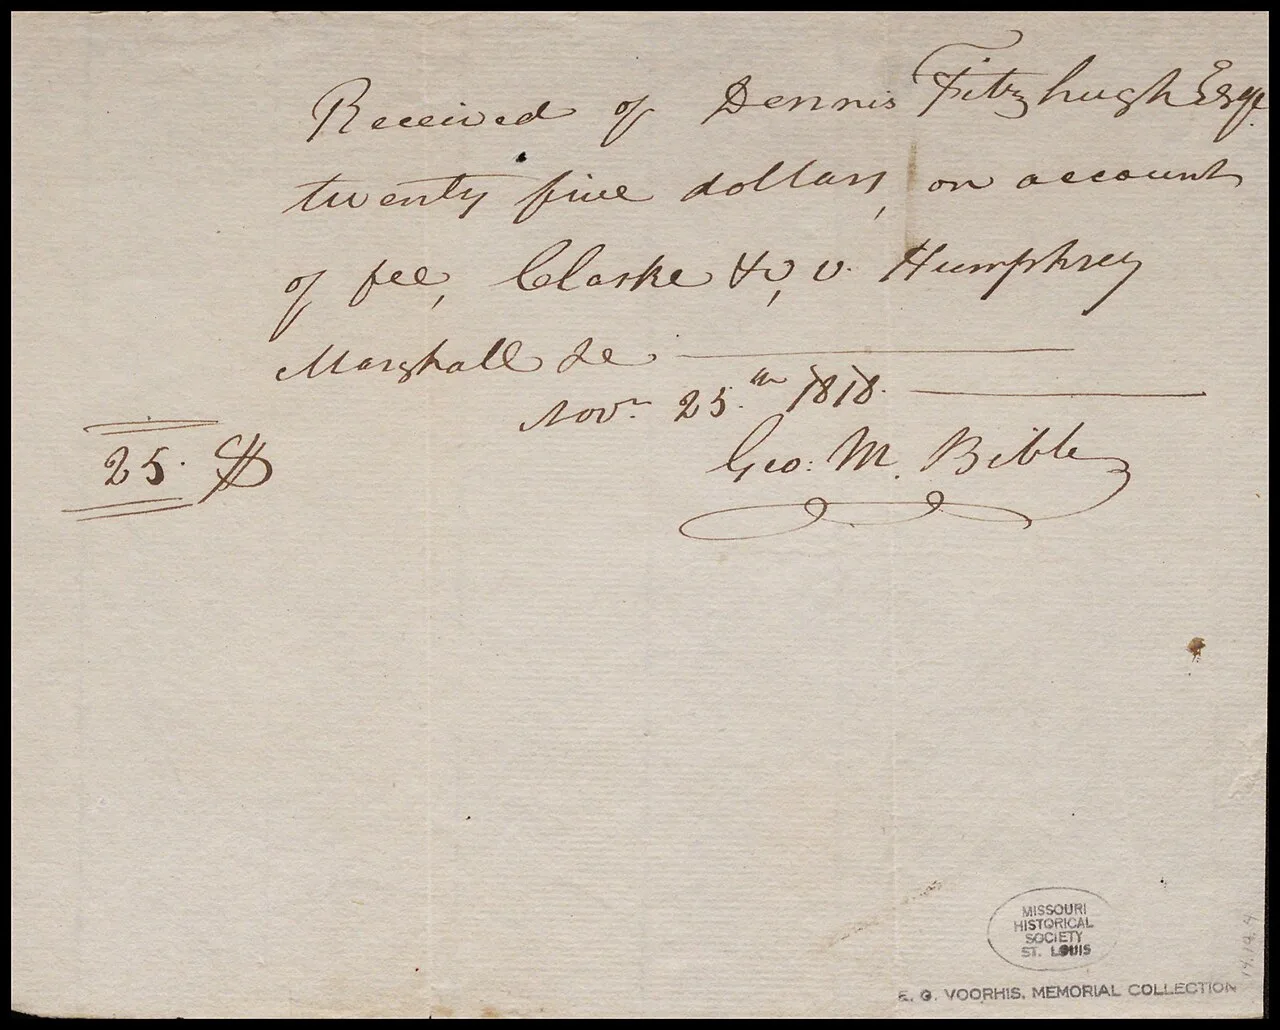 Received of Dennis Fitzhugh Esqr.
twenty five dollars, on account
of fee, Clarke &c, v. Humphrey
Marshall &c.
Novr. 25.th 1818.
25. $
Geo: M. Bibb
MISSOURI
HISTORICAL
SOCIETY
ST. LOUIS
E. G. VOORHIS. MEMORIAL COLLECTION